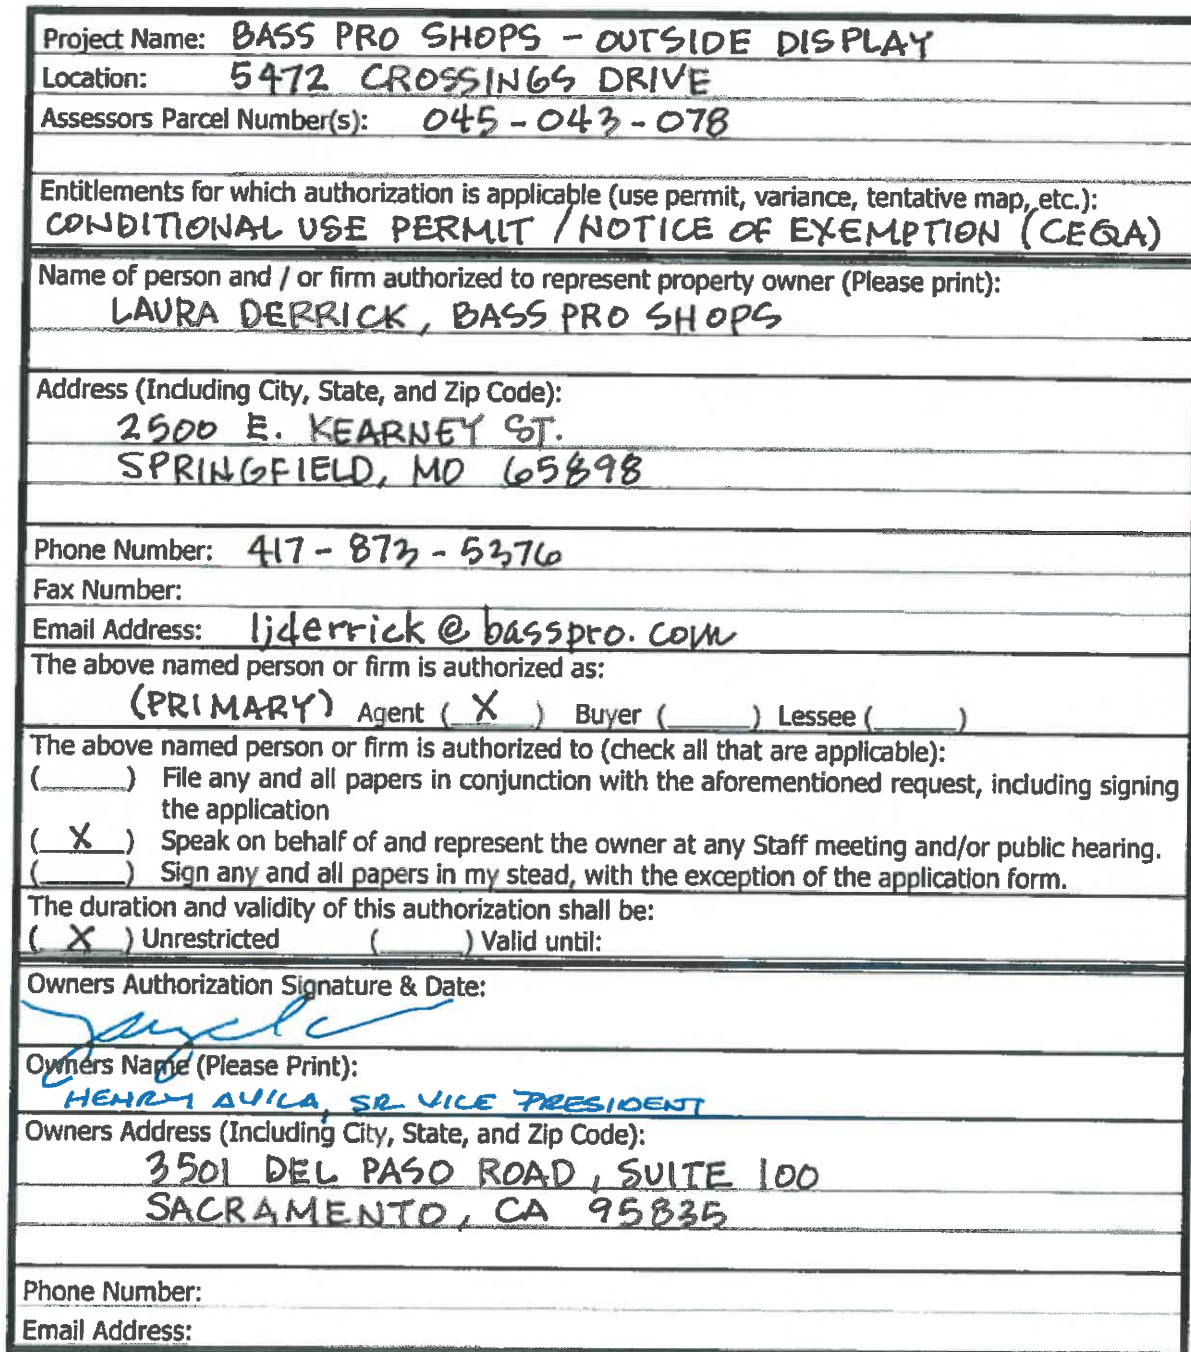 Project Name: BASS PRO SHOPS - OUTSIDE DISPLAY
Location: 5472 CROSSINGS DRIVE
Assessors Parcel Number(s): 045-043-078
Entitlements for which authorization is applicable (use permit, variance, tentative map, etc.):
CONDITIONAL USE PERMIT / NOTICE OF EXEMPTION (CEQA)
Name of person and / or firm authorized to represent property owner (Please print):
LAURA DERRICK, BASS PRO SHOPS
Address (Including City, State, and Zip Code):
2500 E. KEARNEY ST.
SPRINGFIELD, MO 65898
Phone Number: 417-873-5376
Fax Number:
Email Address: ljderrick@basspro.com
The above named person or firm is authorized as:
(PRIMARY) Agent ( X ) Buyer (____) Lessee (____)
The above named person or firm is authorized to (check all that are applicable):
(____) File any and all papers in conjunction with the aforementioned request, including signing
the application
( X ) Speak on behalf of and represent the owner at any Staff meeting and/or public hearing.
(____) Sign any and all papers in my stead, with the exception of the application form.
The duration and validity of this authorization shall be:
( X ) Unrestricted (____) Valid until:
Owners Authorization Signature & Date:
Owners Name (Please Print):
HENRY AVILA, SR VICE PRESIDENT
Owners Address (Including City, State, and Zip Code):
3501 DEL PASO ROAD, SUITE 100
SACRAMENTO, CA 95835
Phone Number:
Email Address: